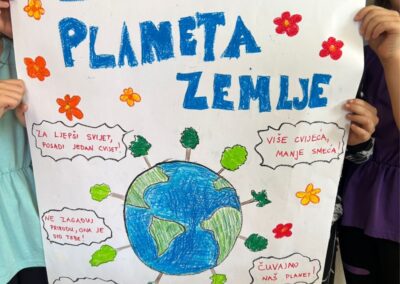 PLANETA
ZEMLJE
ZA LJEPŠI SVIJET,
POSADI JEDAN CVIJET!
VIŠE CVIJEĆA,
MANJE SMEĆA!
NE ZAGAĐUJ
PRIRODU, ONA JE
DIO TEBE!
ČUVAJMO
NAŠ PLANET